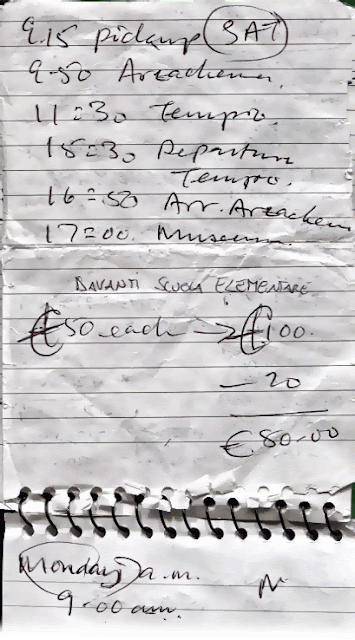 9.15 pickup SAT
9-50 Arzachena
11=30 Tempio.
15=30 Departure
Tempio.
16=.50 Arr. Arzachena
17=00. Museum.
DAVANTI SCUOLA ELEMENTARE
€50 each → €100.
- 20
€80-00
Monday a.m.
9.00 am.